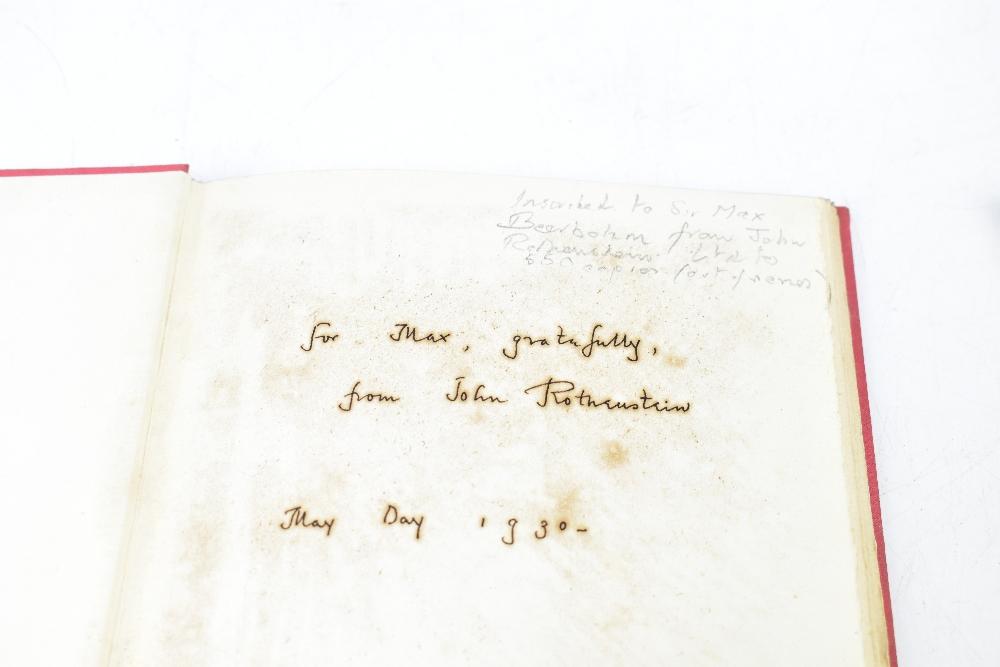 Inscribed to Sir Max
Beerbohm from John
Rothenstein. Ltd to
550 copies (out-series)
for Max, gratefully,
from John Rothenstein
May Day 1930-